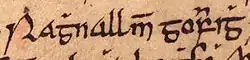 Raġnall m̄ gofriġ